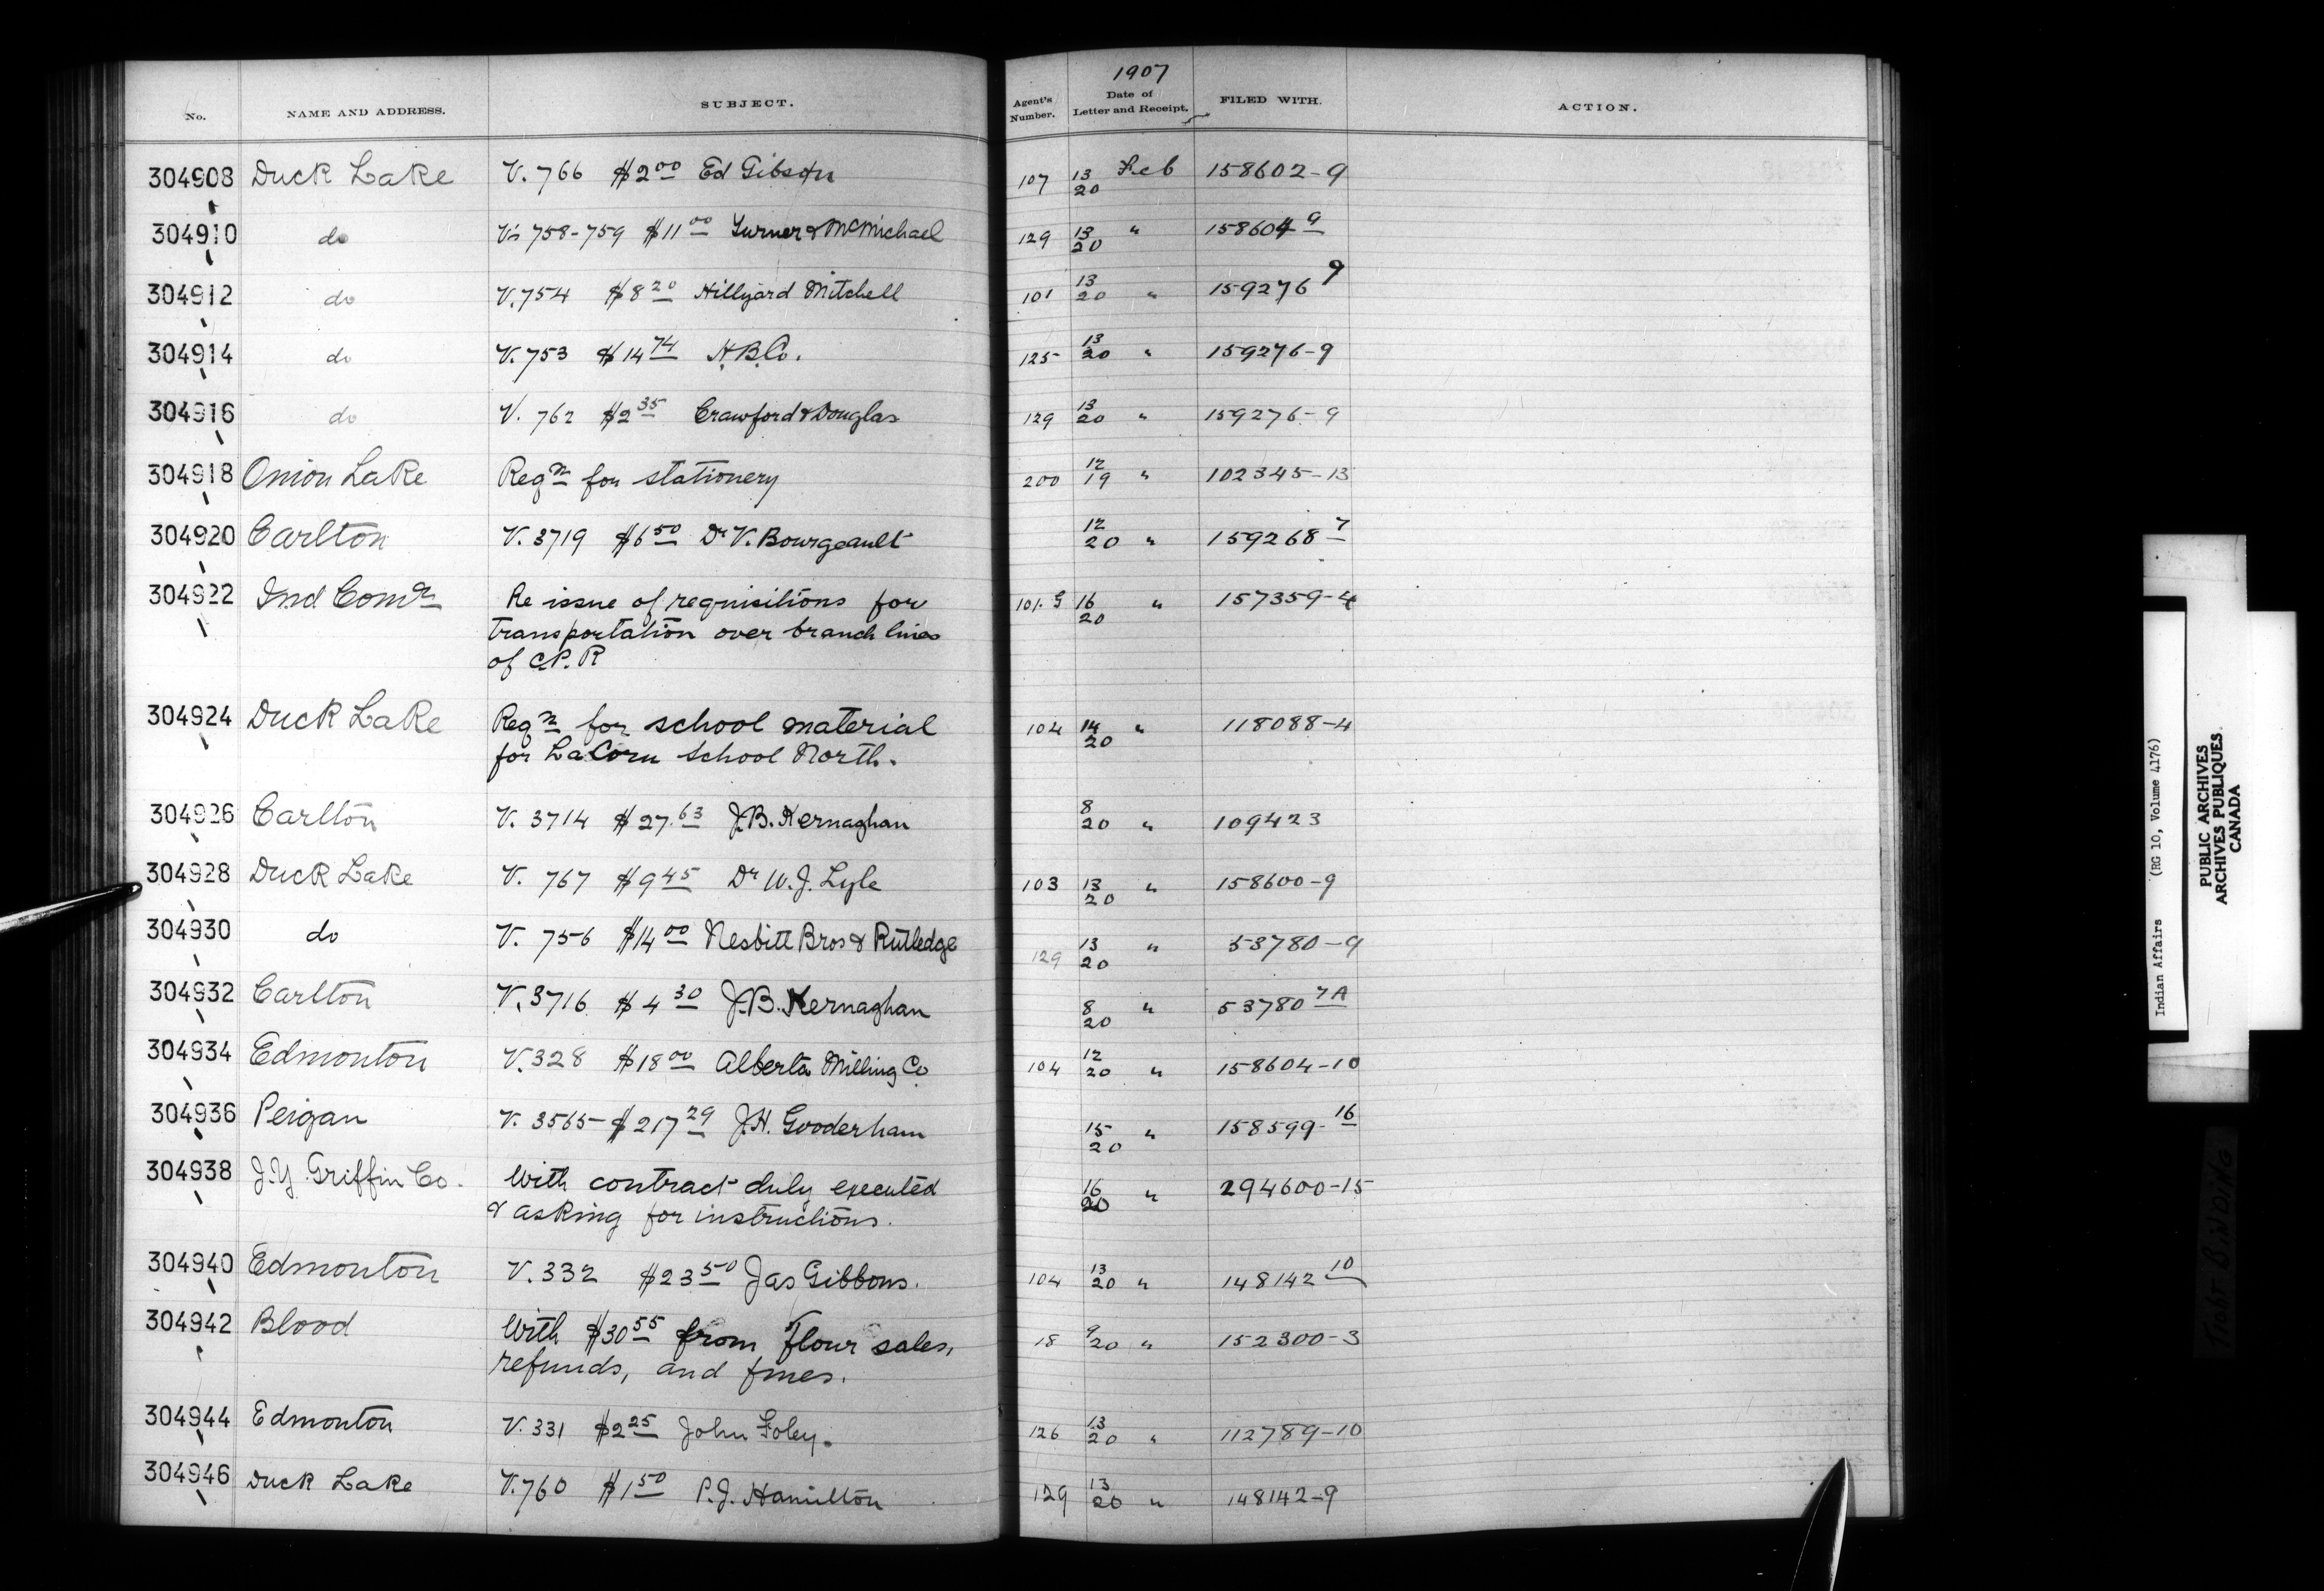 1907
No. NAME AND ADDRESS. SUBJECT. Agent's Number. Date of Letter and Receipt. FILED WITH. ACTION.
304908 Duck Lake V. 766 $2 00 Ed Gibson 107 13/20 Feb 158602-9
304910 do Vs 758-759 $11 00 Turner & McMichael 129 13/20 " 158604 9
304912 do V. 754 $8 20 Hillyard Mitchell 101 13/20 " 159276 9
304914 do V. 753 $14 74 H.B.Co. 125 13/20 " 159276-9
304916 do V. 762 $2 35 Crawford & Douglas 129 13/20 " 159276-9
304918 Onion Lake Reqn for stationery 200 12/19 " 102345-13
304920 Carlton V. 3719 $6 50 Dr V. Bourgeault 12/20 " 159268 7
304922 Ind Comr Re issue of requisitions for 101.G 16/20 " 157359-4
transportation over branch lines
of C.P.R
304924 Duck Lake Reqn for school material 104 14/20 " 118088-4
for LaCorn School North.
304926 Carlton V. 3714 $27.63 J.B. Kernaghan 8/20 " 109423
304928 Duck Lake V. 767 $9 45 Dr W.J. Lyle 103 13/20 " 158600-9
304930 do V. 756 $14 00 Nesbitt Bros & Rutledge 129 13/20 " 53780-9
304932 Carlton V. 3716 $4 30 J.B. Kernaghan 8/20 " 53780 7A
304934 Edmonton V. 328 $18 00 Alberta Milling Co 104 12/20 " 158604-10
304936 Peigan V. 3565-$217 29 J.H. Gooderham 15/20 " 158599-16
304938 J.Y. Griffin Co. With contract duly executed 16/20 " 294600-15
& asking for instructions.
304940 Edmonton V. 332 $23 50 Jas Gibbons. 104 13/20 " 148142 10
304942 Blood With $30 55 from flour sales, 18 9/20 " 152300-3
refunds, and fines.
304944 Edmonton V. 331 $2 25 John Foley. 126 13/20 " 112789-10
304946 Duck Lake V. 760 $1 50 P.J. Hamilton 129 13/20 " 148142-9
Indian Affairs (RG 10, Volume 4176)
PUBLIC ARCHIVES
ARCHIVES PUBLIQUES
CANADA
Tight BINDING